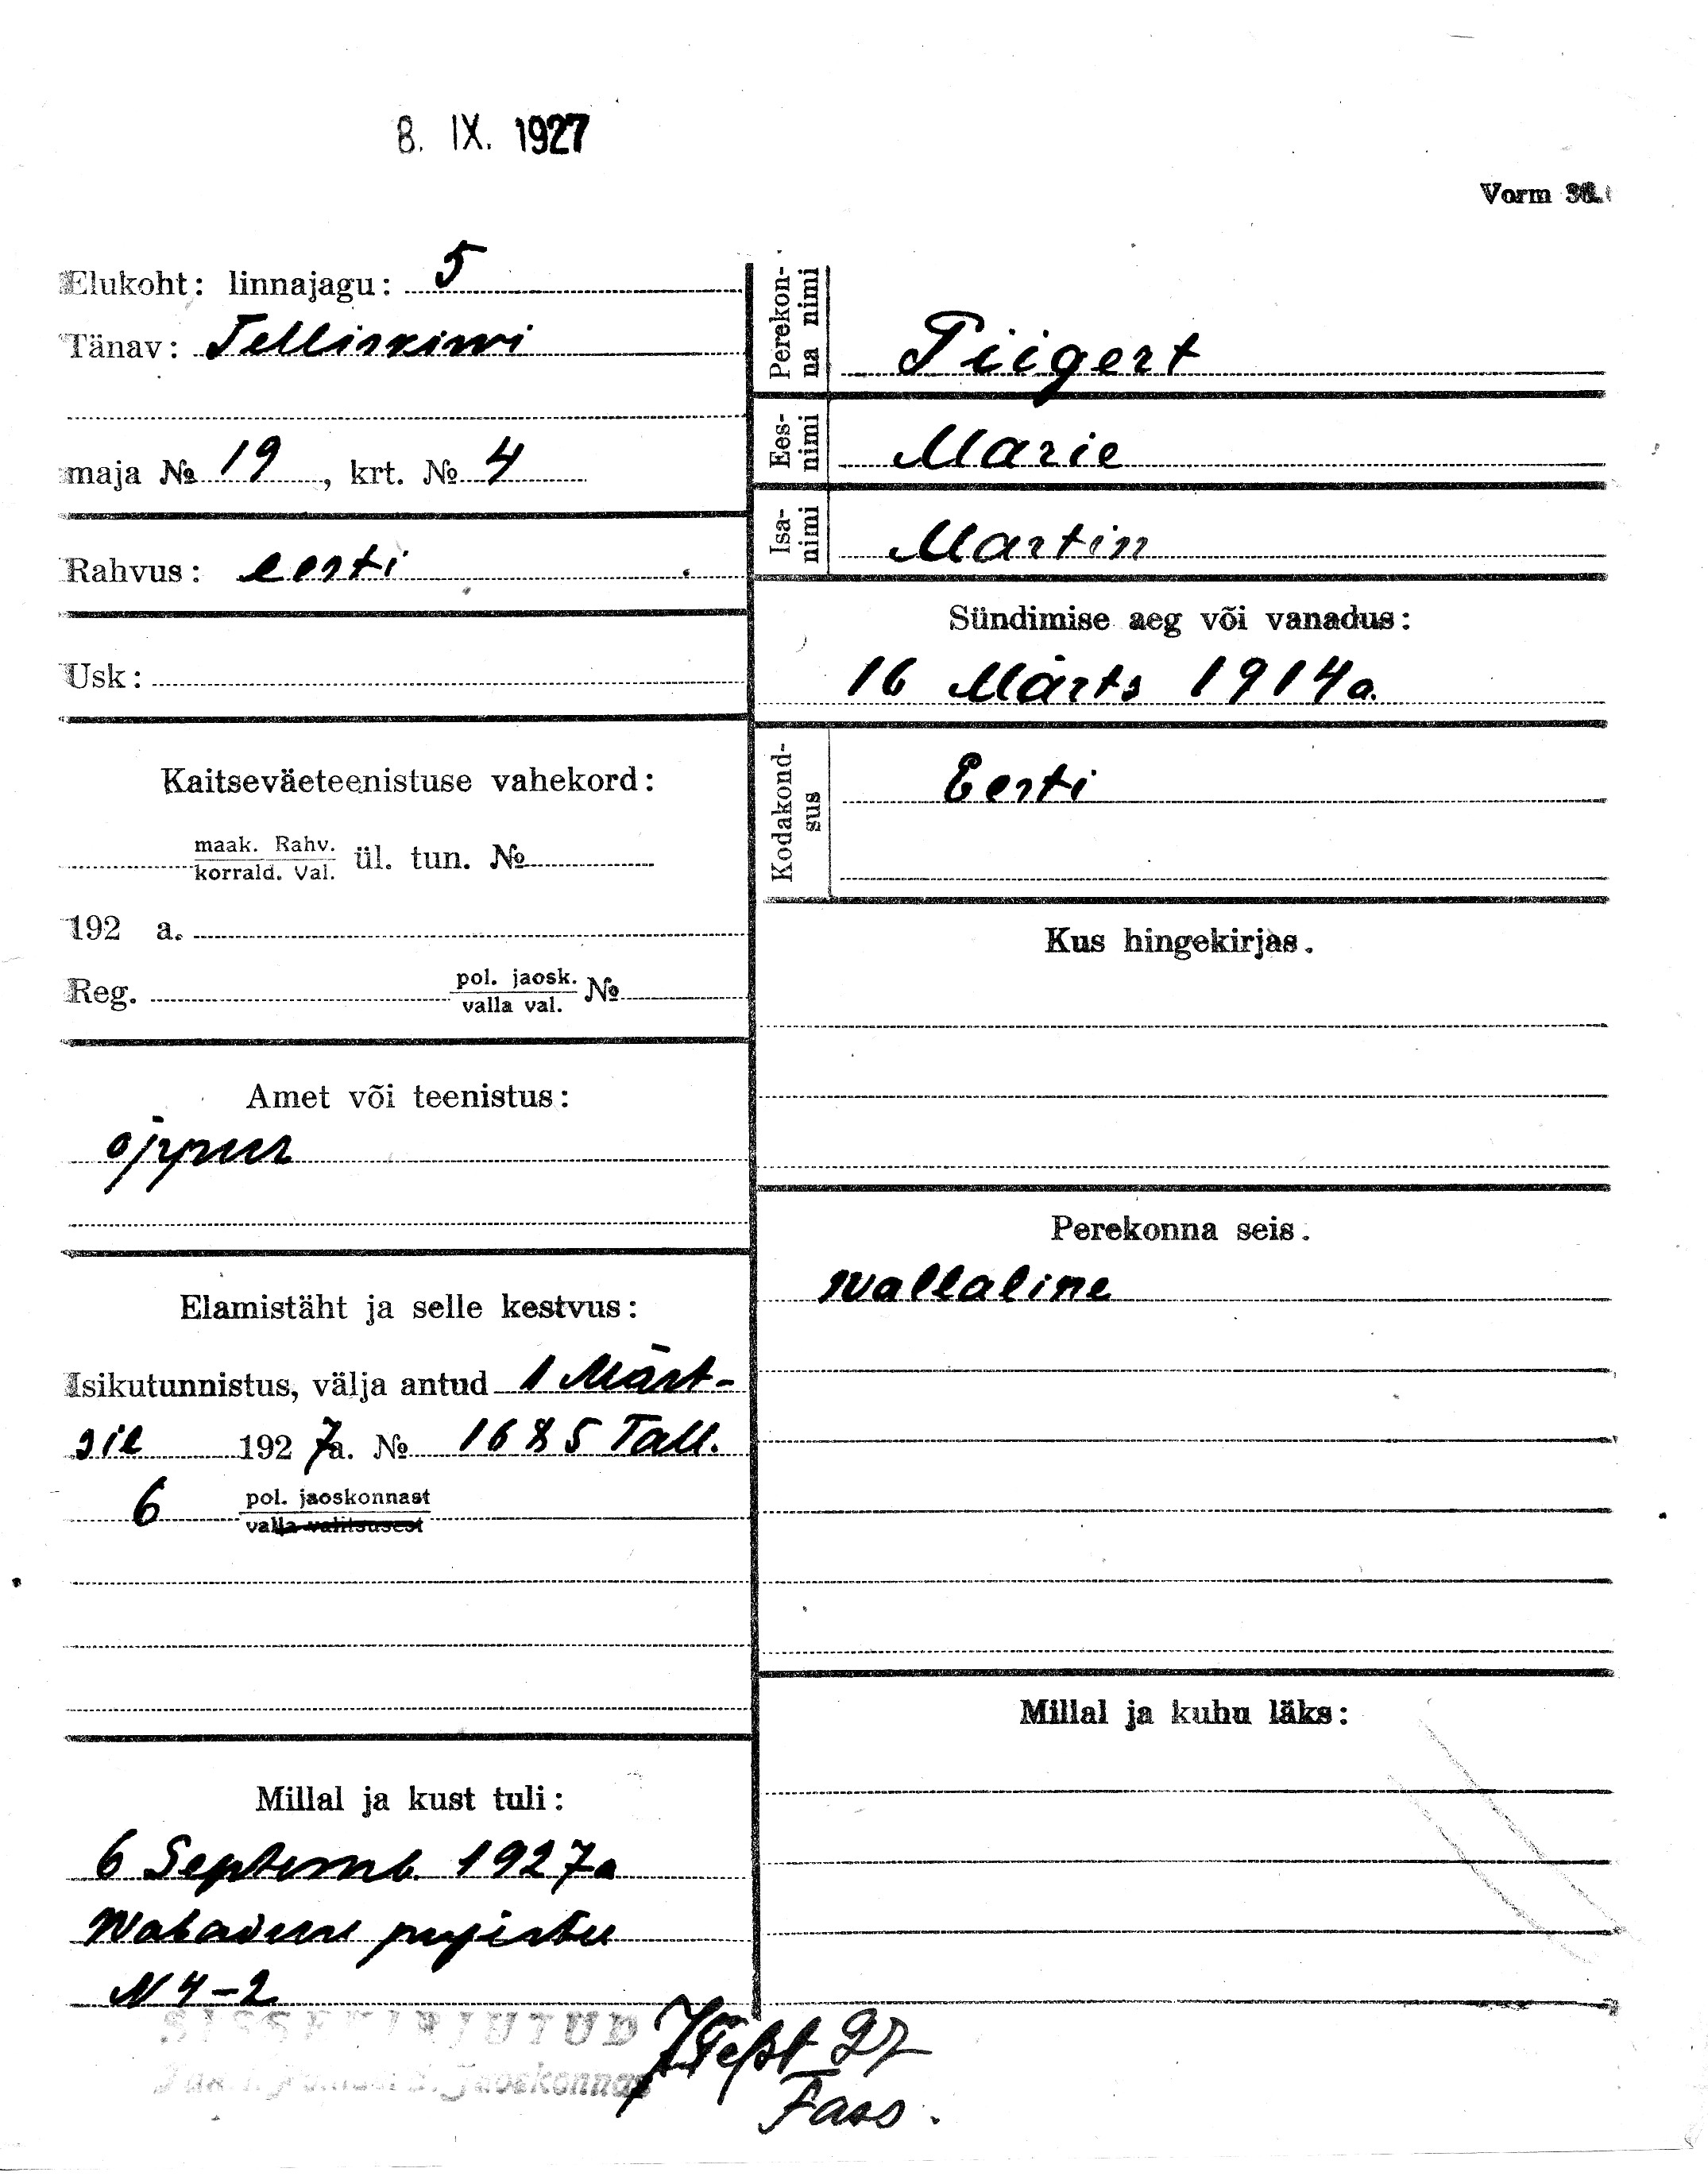 8. IX. 1927
Vorm 36.
Elukoht: linnajagu: 5
Tänav: Telliskiwi
maja № 19, krt. № 4
Rahvus: eesti
Usk:
Kaitseväeteenistuse vahekord:
maak. Rahv.
korrald. Val. ül. tun. №
192 a.
Reg. pol. jaosk. №
valla val.
Amet või teenistus:
õppur
Elamistäht ja selle kestvus:
Isikutunnistus, välja antud 1 Märt-
sil 1927 a. № 1685 Tall.
6 pol. jaoskonnast
valla valitsusest
Millal ja kust tuli:
6 Septemb. 1927 a
Wabaduse pujestee
N 4-2
Perekon-
na nimi
Piigert
Ees-
nimi
Marie
Isa-
nimi
Martin
Sündimise aeg või vanadus:
16 Märts 1914 a.
Kodakond-
sus
Eesti
Kus hingekirjas.
Perekonna seis.
wallaline
Millal ja kuhu läks:
SISSEKIRJUTUD
jaoskonnas
7 Sept 27